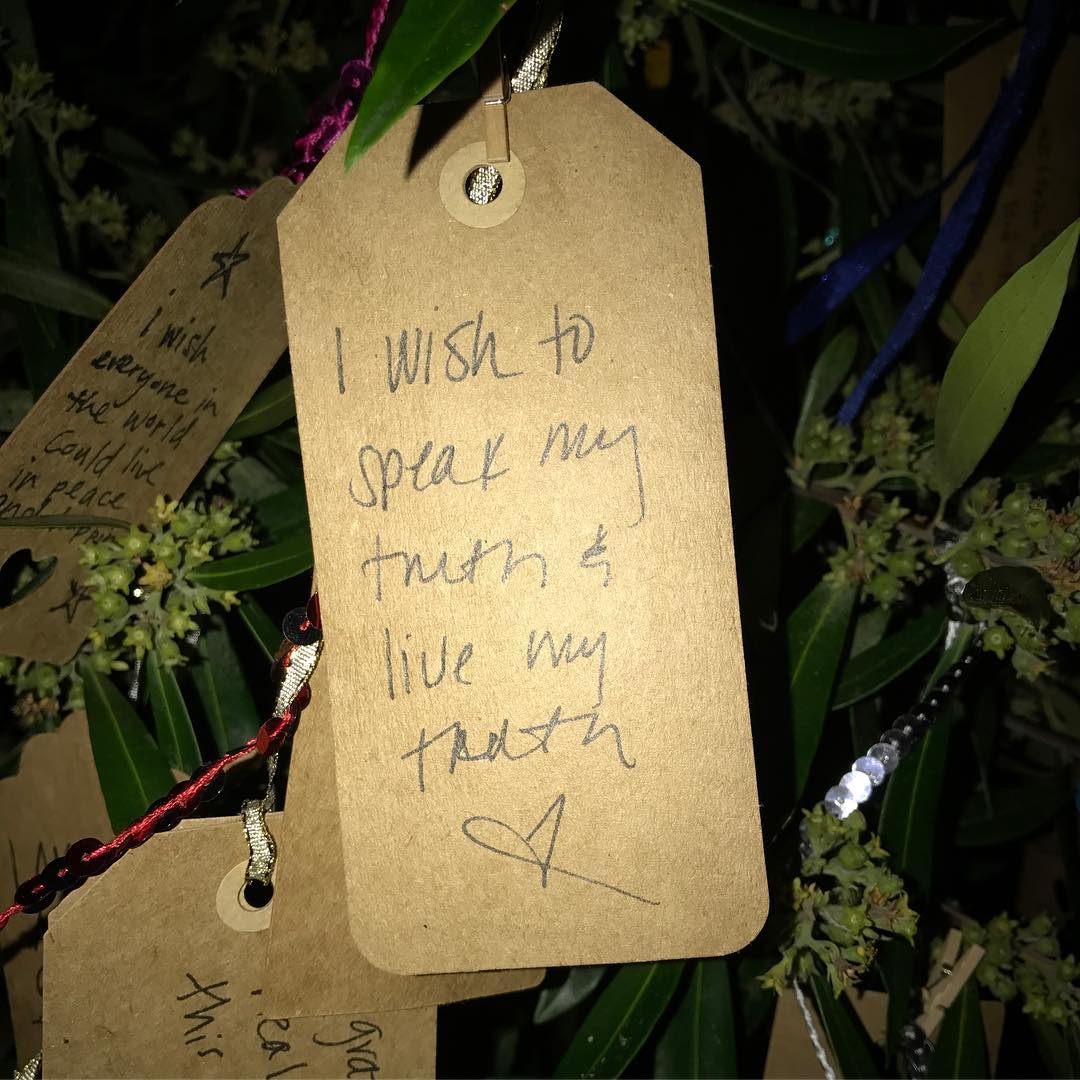 I wish to
speak my
truth &
live my
truth
I wish
everyone in
the world
could live
in peace
this